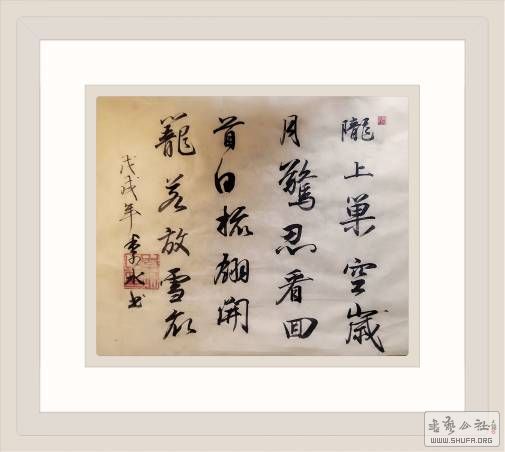 隴上巢空歲
月驚忍看回
首自梳翎開
籠若放雪衣
戊戌年 书
书艺公社
WWW.SHUFA.ORG